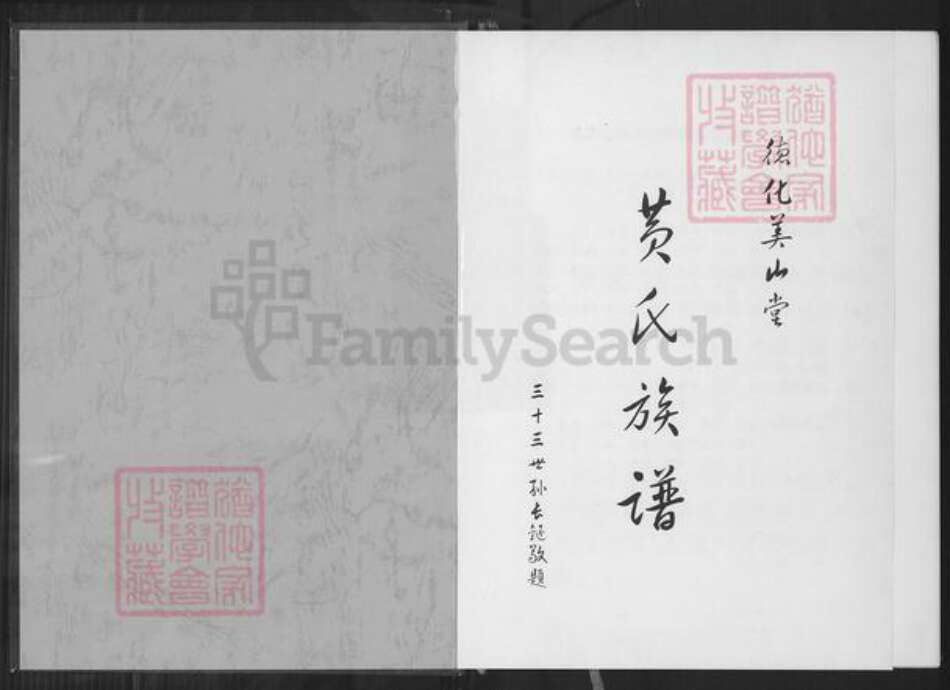 德化美山堂
黄氏族谱
三十三世孙长鈍敬题
猶他家譜學會收藏
猶他家譜學會收藏
FamilySearch